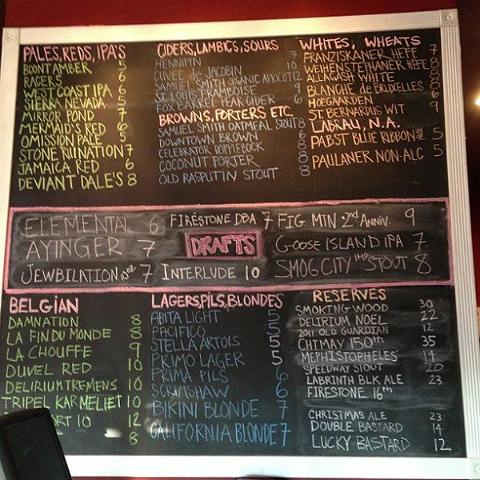 PALES, REDS, IPA'S
BOONT AMBER 5
RACER 5 6
WEST COAST IPA 6
SIERRA NEVADA 5
MIRROR POND 7
MERMAID'S RED 6
OMISSION PALE 5
STONE RUINATION 7
JAMAICA RED 6
DEVIANT DALE'S 8
CIDERS, LAMBICS, SOURS
HENNIPIN
CUVEE de JACOBIN
SAMUEL SMITH ORGANIC APRICOT 12
ST. LOUIS FRAMBOISE
FOX BARREL PEAR CIDER 6
BROWNS, PORTERS ETC.
SAMUEL SMITH OATMEAL STOUT 8
DOWNTOWN BROWN
CELEBRATOR DOPPLEBOCK
COCONUT PORTER
OLD RASPUTIN STOUT 8
WHITES, WHEATS
FRANZISKANER HEFE 7
WEIHENSTEPHANER HEFE 8
ALLAGASH WHITE 8
BLANCHE de BRUXELLES
HOEGAARDEN 6
ST BERNARDUS WIT 9
LABEAU, N.A.
PABST BLUE RIBBON 5
PAULANER NON-ALC 5
ELEMENTAL 6
AYINGER 7
JEWBILATION 7
FIRESTONE DBA 7
DRAFTS
INTERLUDE 10
FIG MIN 2nd ANNIV. 9
GOOSE ISLAND IPA 7
SMOG CITY IMP STOUT 8
BELGIAN
DAMNATION 8
LA FIN DU MONDE 8
LA CHOUFFE 9
DUVEL RED 10
DELIRIUM TREMENS 10
TRIPEL KARMELIET 10
10 12
8
LAGERS, PILS, BLONDES
ABITA LIGHT 5
PACIFICO 5
STELLA ARTOIS 5
PRIMO LAGER 5
PRIMA PILS 6
SCRIMSHAW 6
BIKINI BLONDE 7
CALIFORNIA BLONDE 7
RESERVES
SMOKING WOOD 30
DELIRIUM NOEL 22
2011 OLD GUARDIAN 12
CHIMAY 150th 35
MEPHISTOPHELES 14
SPEEDWAY STOUT 20
LABRINTH BLK ALE 23
FIRESTONE 16th
CHRISTMAS ALE 23
DOUBLE BASTARD 14
LUCKY BASTARD 12